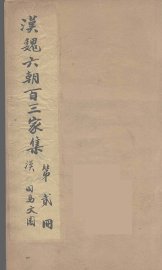 漢魏六朝百三家集
第貳冊
漢 司馬文園